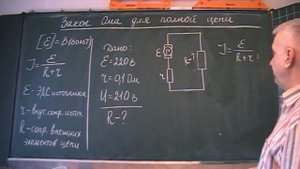 Закон Ома для полной цепи
[Ɛ]=В(вольт)
J = Ɛ / R+r
Ɛ - ЭДС источника
r - внут. сопр. источ.
R - сопр. внешних
элементов цепи
Дано:
Ɛ=220В
r=0,1Ом
U=210В
R-?
Ɛ
r
R-?
J = Ɛ / R+r